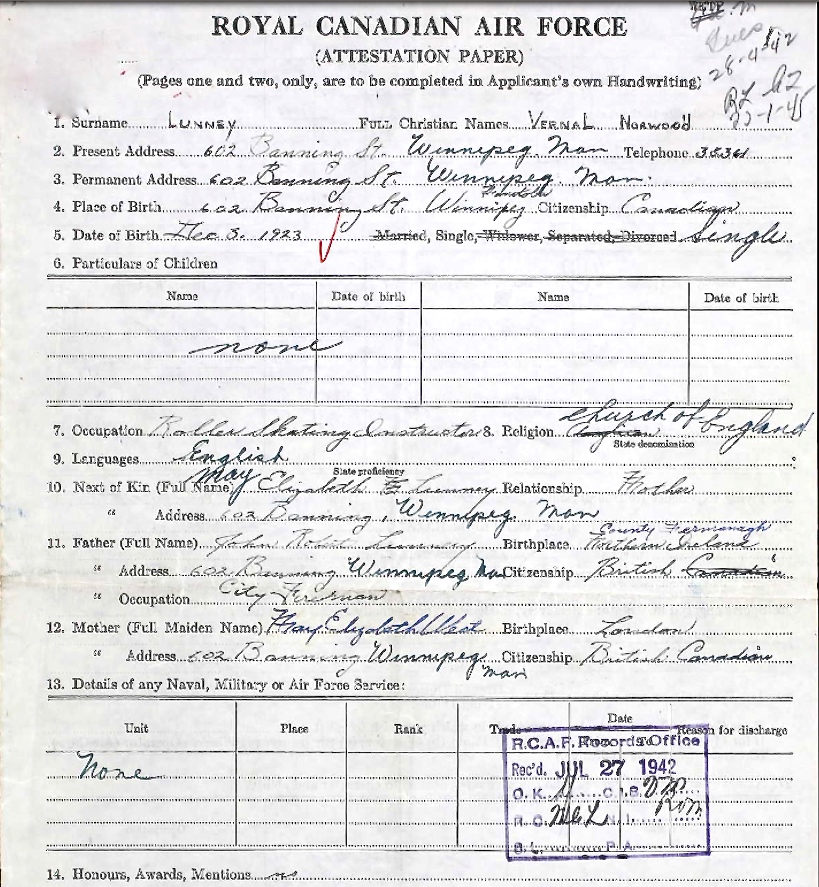 ROYAL CANADIAN AIR FORCE
(ATTESTATION PAPER)
28-4-42
(Pages one and two, only, are to be completed in Applicant's own Handwriting)
1. Surname LUNNEY FULL Christian Names VERNAL NORWOOD
2. Present Address 602 Banning St. Winnipeg. Man Telephone 35361
3. Permanent Address 602 Banning St. Winnipeg. Man.
4. Place of Birth 602 Banning St. Winnipeg Manitoba Citizenship Canadian
5. Date of Birth Dec 3. 1923 Married, Single, Widower, Separated, Divorced Single
6. Particulars of Children
Name Date of birth Name Date of birth
none
7. Occupation Roller Skating Instructor 8. Religion Church of England
State denomination
9. Languages English
State proficiency
10. Next of Kin (Full Name) May Elizabeth Lunney Relationship Mother
" Address 602 Banning, Winnipeg Man
County Fermanagh
11. Father (Full Name) John Robt Lunney Birthplace Northern Ireland
" Address 602 Banning Winnipeg Man Citizenship British Canadian
" Occupation City Fireman
12. Mother (Full Maiden Name) May Elizabeth West Birthplace London
" Address 602 Banning Winnipeg Man Citizenship British Canadian
13. Details of any Naval, Military or Air Force Service:
Unit Place Rank Trade Date Reason for discharge
None
R.C.A.F. Records Office
Rec'd. JUL 27 1942
O.K. C.I.S.
R.C. N.I.
S.L. P.A.
14. Honours, Awards, Mentions no